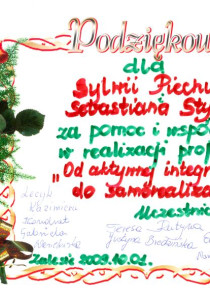 Podziękow
dla
Sylwii Piechu
Sebastiana Sty
za pomoc i wspó
w realizacji pro
"Od aktywnej integr
do samorealiza
Uczestnic
Lucyk
Kazimiera
Gabriela
Teresa
Justyna
Zalesie 2009.10.02.